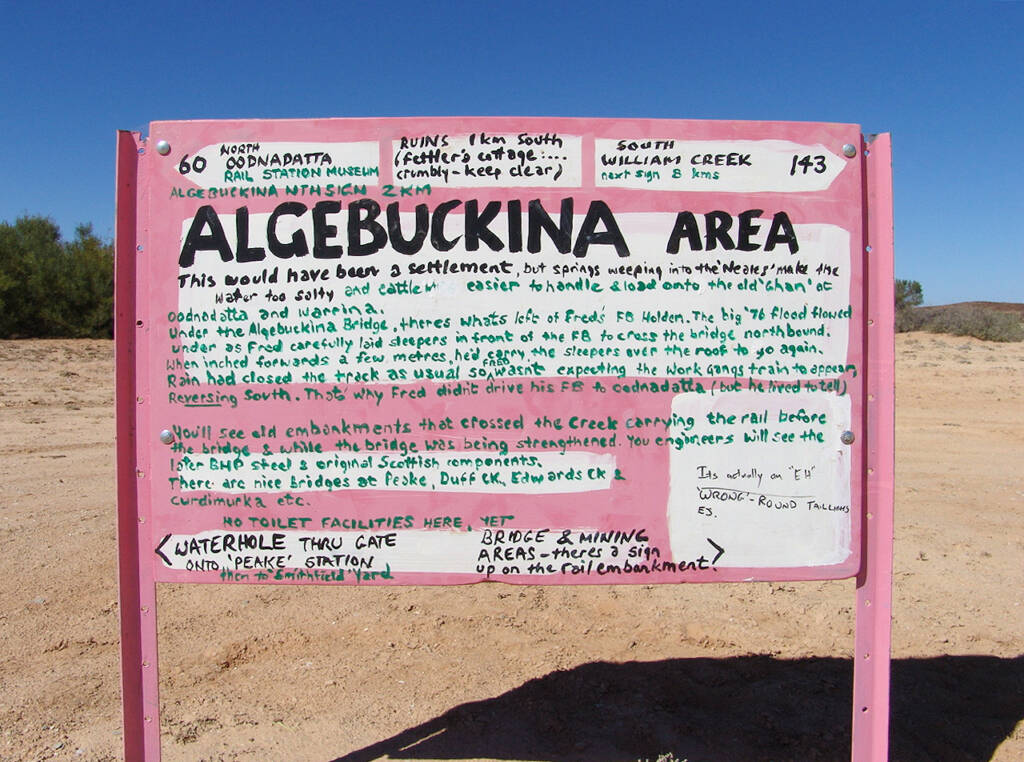 60 NORTH
OODNADATTA
RAIL STATION MUSEUM
RUINS 1km South
(fettler's cottage....
crumbly-keep clear)
SOUTH
WILLIAM CREEK 143
next sign 8 kms
ALGEBUCKINA NTH SIGN 2KM
ALGEBUCKINA AREA
This would have been a settlement, but springs weeping into the 'Neales' make the
water too salty and cattle easier to handle & load onto the old 'Ghan' at
Oodnadatta and Warrina.
Under the Algebuckina Bridge, theres whats left of Freds' FB Holden. The big '76 flood flowed
under as Fred carefully laid sleepers in front of the FB to cross the bridge northbound.
When inched forwards a few metres, he'd carry the sleepers over the roof to go again.
Rain had closed the track as usual so FRED wasn't expecting the work gangs train to appear,
Reversing South. That's why Fred didn't drive his FB to Oodnadatta (but he lived to tell)
You'll see old embankments that crossed the Creek carrying the rail before
the bridge & while the bridge was being strengthened. You engineers will see the
later BHP steel & original Scottish components.
There are nice bridges at Peake, Duff CK, Edwards CK &
Curdimurka etc.
Its actually an "EH"
'WRONG'-ROUND TAILLIGHTS
EJ.
NO TOILET FACILITIES HERE, YET
< WATERHOLE THRU GATE
ONTO 'PEAKE' STATION
then to 'Smithfield' Yard
BRIDGE & MINING
AREAS - theres a sign >
up on the rail embankment.